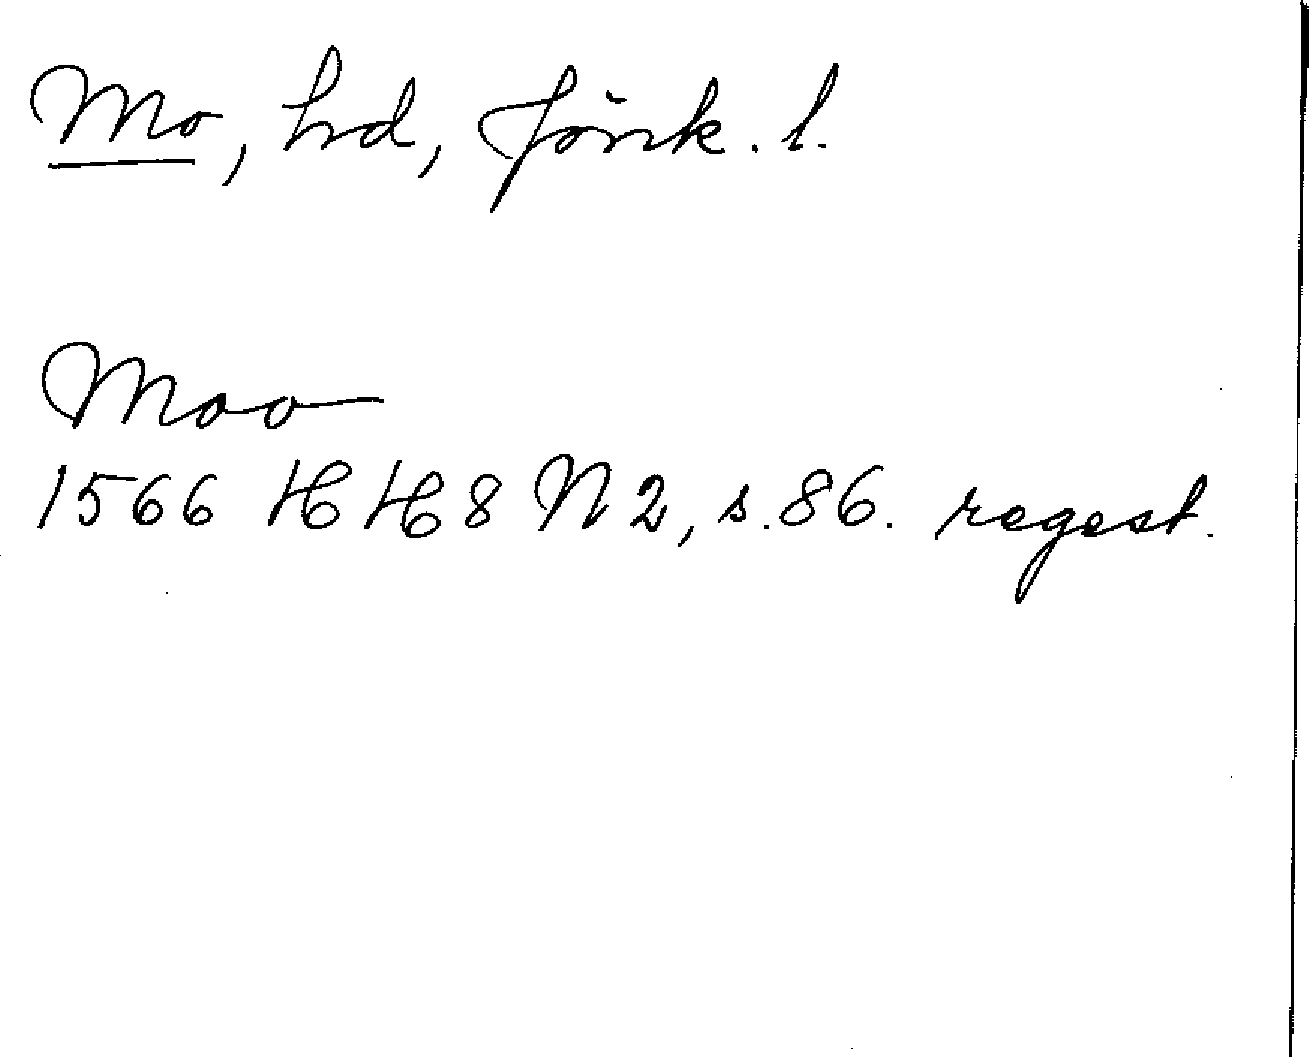 Mo, hd, Jönk. l.
Moo
1566 HH 8 N 2, s. 86. regest.